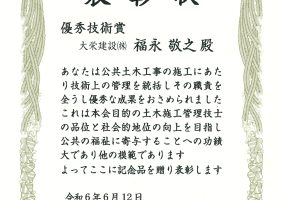 表彰状
優秀技術賞
大栄建設㈱ 福永 敬之 殿
あなたは公共土木工事の施工にあた
り技術上の管理を統括しその職責を
全うし優秀な成果をおさめられました
これは本会目的の土木施工管理技士
の品位と社会的地位の向上を目指し
公共の福祉に寄与することへの功績
大であり他の模範であります
よってここに記念品を贈り表彰します
令和6年6月12日